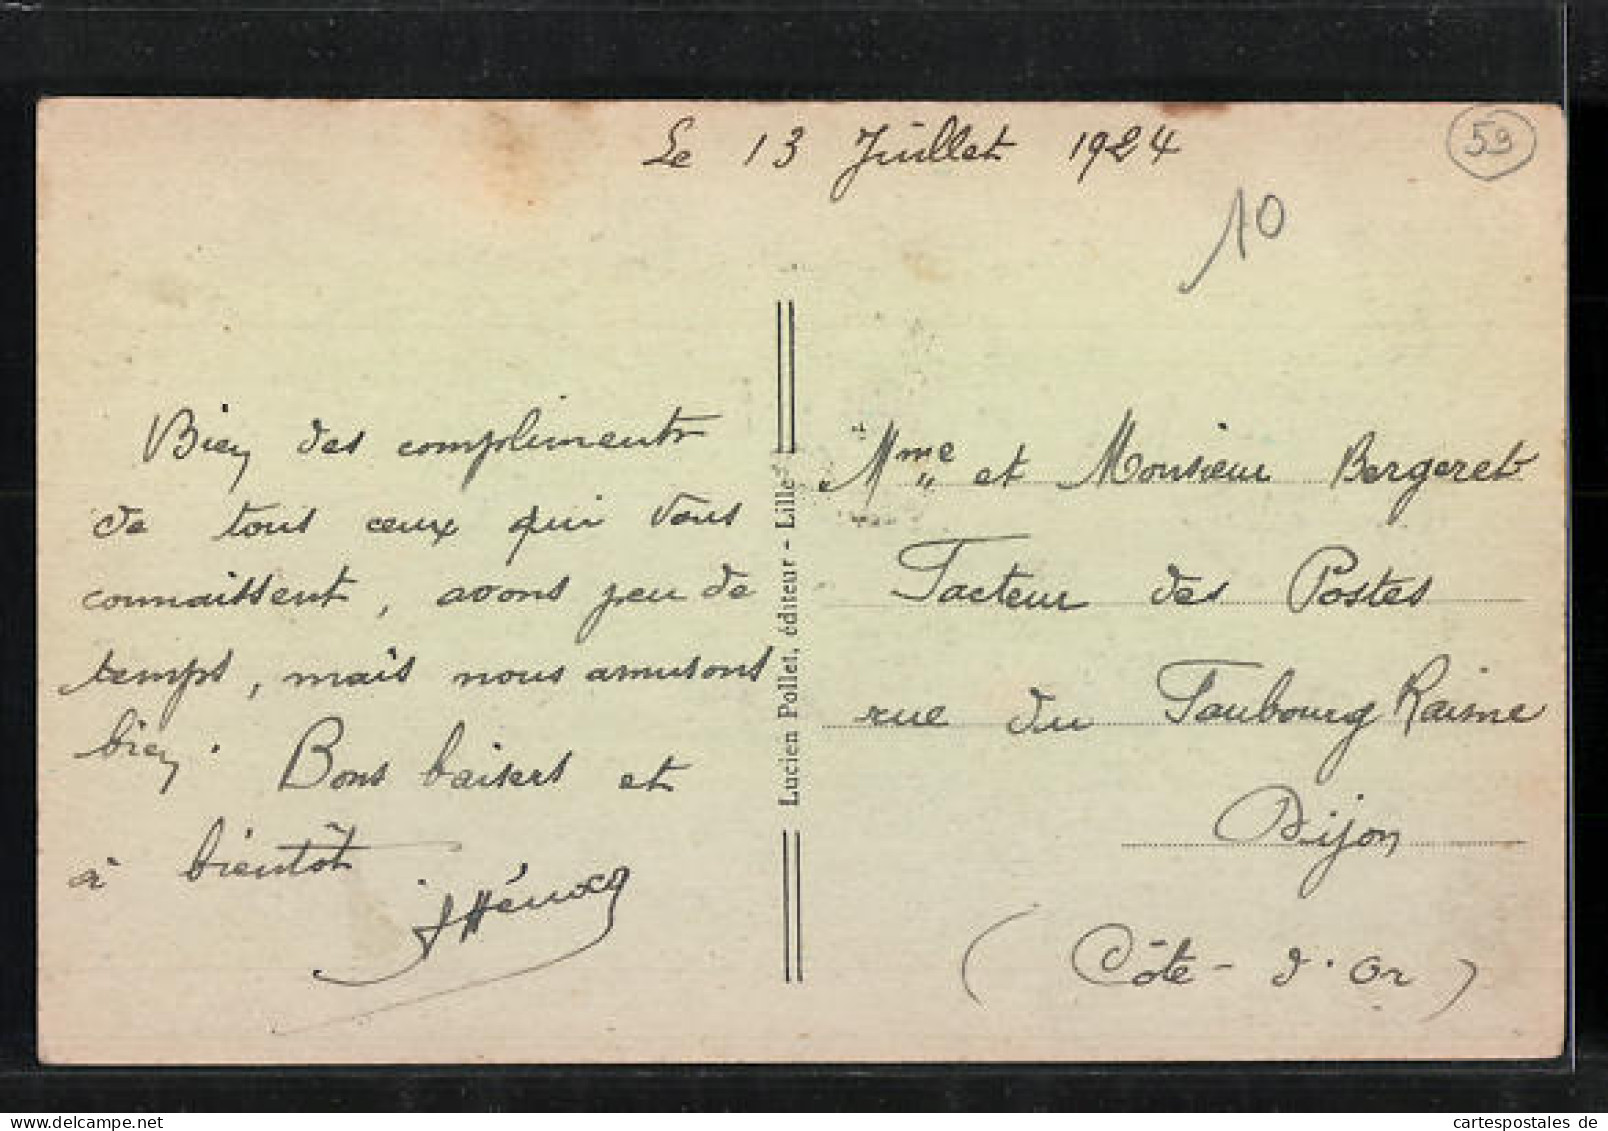 Le 13 Juillet 1924
59
10
Bien des compliments
de tous ceux qui vous
connaissent, avons peu de
temps, mais nous amusons
bien. Bons baisers et
à bientôt
Lucien Pollet, éditeur - Lille
Mme et Monsieur Bergeret
Facteur des Postes
rue du Faubourg Raine
Dijon
(Côte-d'Or)
cartespostales de